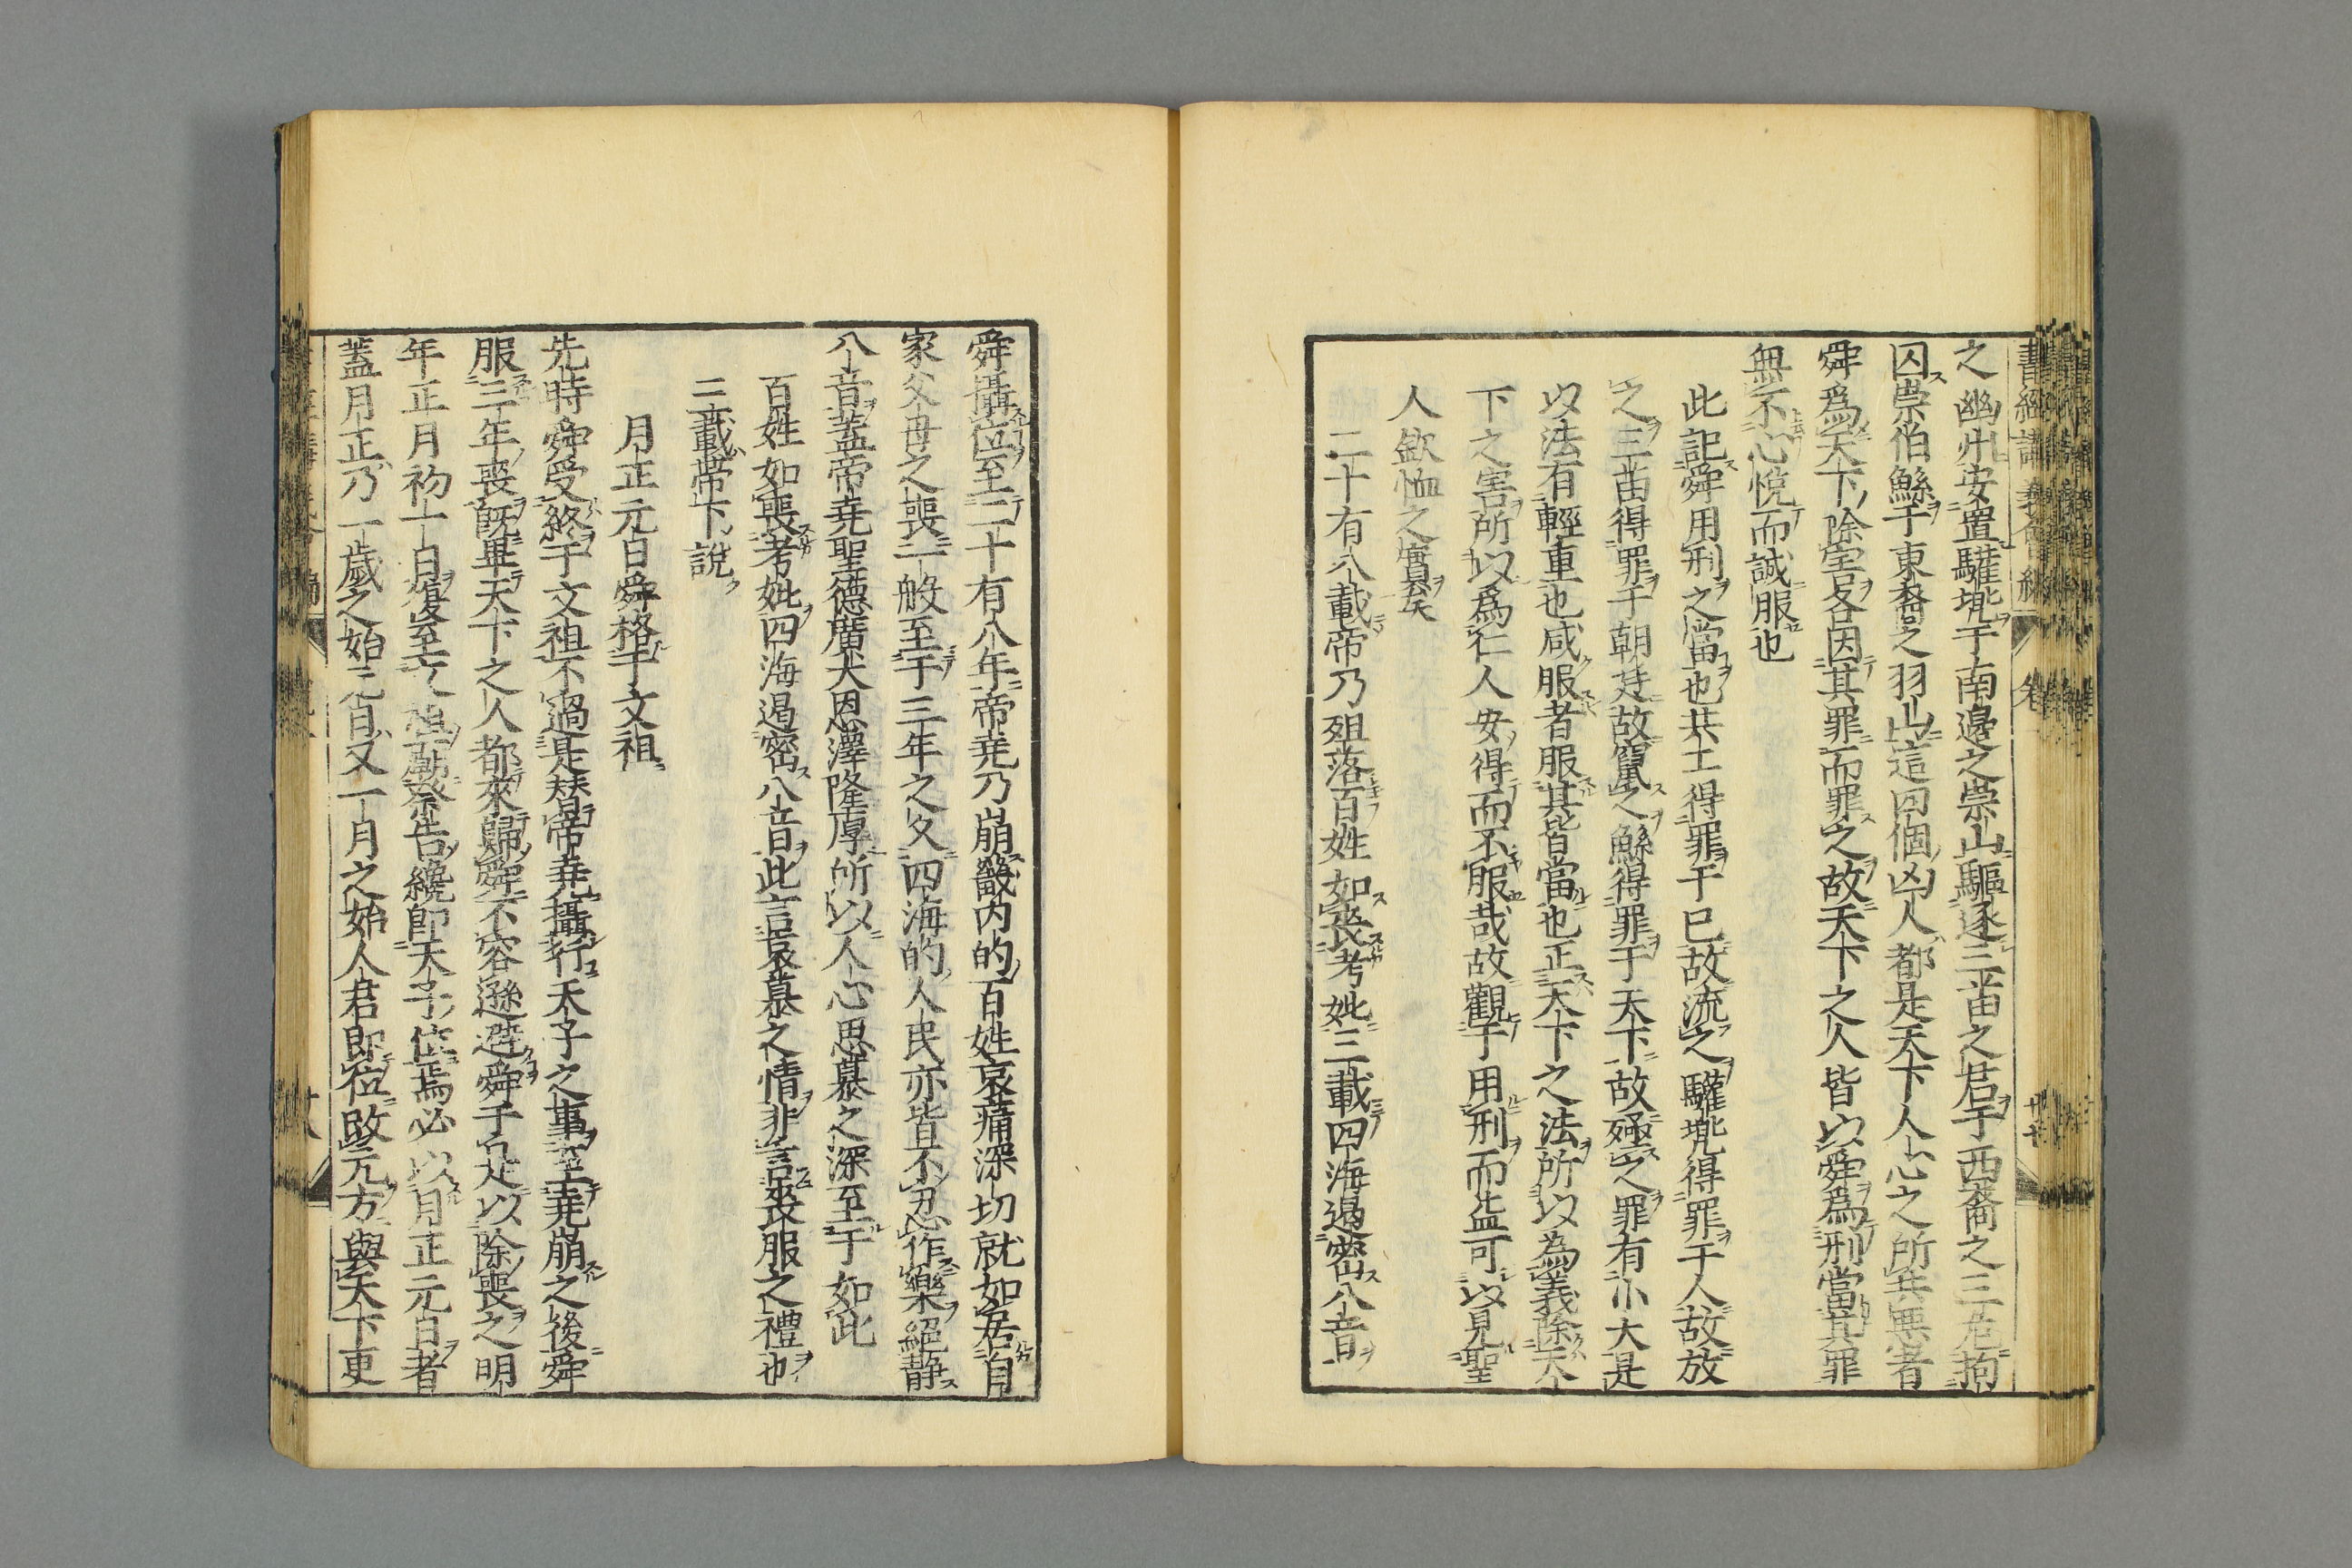 之幽州安置驩兠于南邊之崇山驅逐三苗之君于西裔之三危拘
囚崇伯鯀于東裔之羽山這四個凶人都是天下人心之所共惡者
舜爲天下除害各因其罪而罪之故天下之人皆以舜爲刑當其罪
無不心悅而誠服也
此記舜用刑之當也共工得罪于已故流之驩兠得罪于人故放
之三苗得罪于朝廷故竄之鯀得罪于天下故殛之罪有小大是
以法有輕重也咸服者服其皆當也正天下之法所以為義除天
下之害所以爲仁人安得而不服哉故觀于用刑而益可以見聖
人欽恤之實矣
二十有八載帝乃殂落百姓如喪考妣三載四海遏密八音
舜攝位至二十有八年帝堯乃崩畿内的百姓哀痛深切就如居自
家父母之喪一般至于三年之久四海的人民亦皆不忍作樂絕靜
八音蓋帝堯聖德廣大恩澤隆厚所以人心思慕之深至于如此
百姓如喪考妣四海遏密八音此言哀慕之情非言喪服之禮也
三載帝下說
月正元日舜格于文祖
先時舜受終于文祖不過是替帝堯攝行天子之事至堯崩之後舜
服三年喪旣畢天下之人都來歸舜不容遜避舜于是以除喪之明
年正月初一日復至文祖廟祭告纔卽天子位焉必以月正元日者
蓋月正乃一歲之始元日又一月之始人君即位改元方與天下更